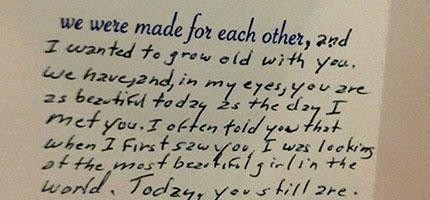 we were made for each other, and
I wanted to grow old with you.
We have, and, in my eyes, you are
as beautiful today as the day I
met you. I often told you that
when I first saw you, I was looking
at the most beautiful girl in the
world. Today, you still are.